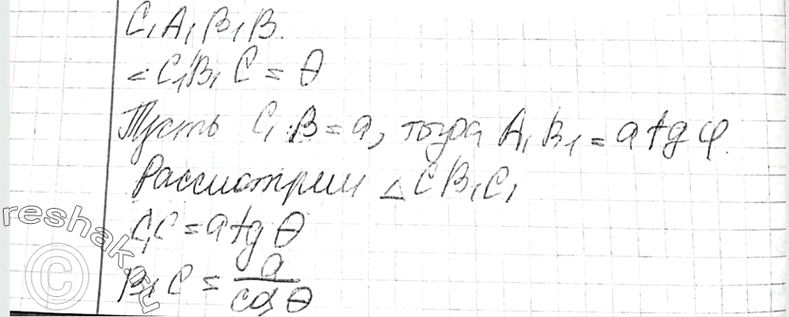 C₁A₁B₁B.
∠C₁B₁C = θ
Пусть C₁B = a, тогда A₁B₁ = a tg φ.
Рассмотрим △CB₁C₁
C₁C = a tg θ
B₁C = a/cos θ
reshak.ru
©